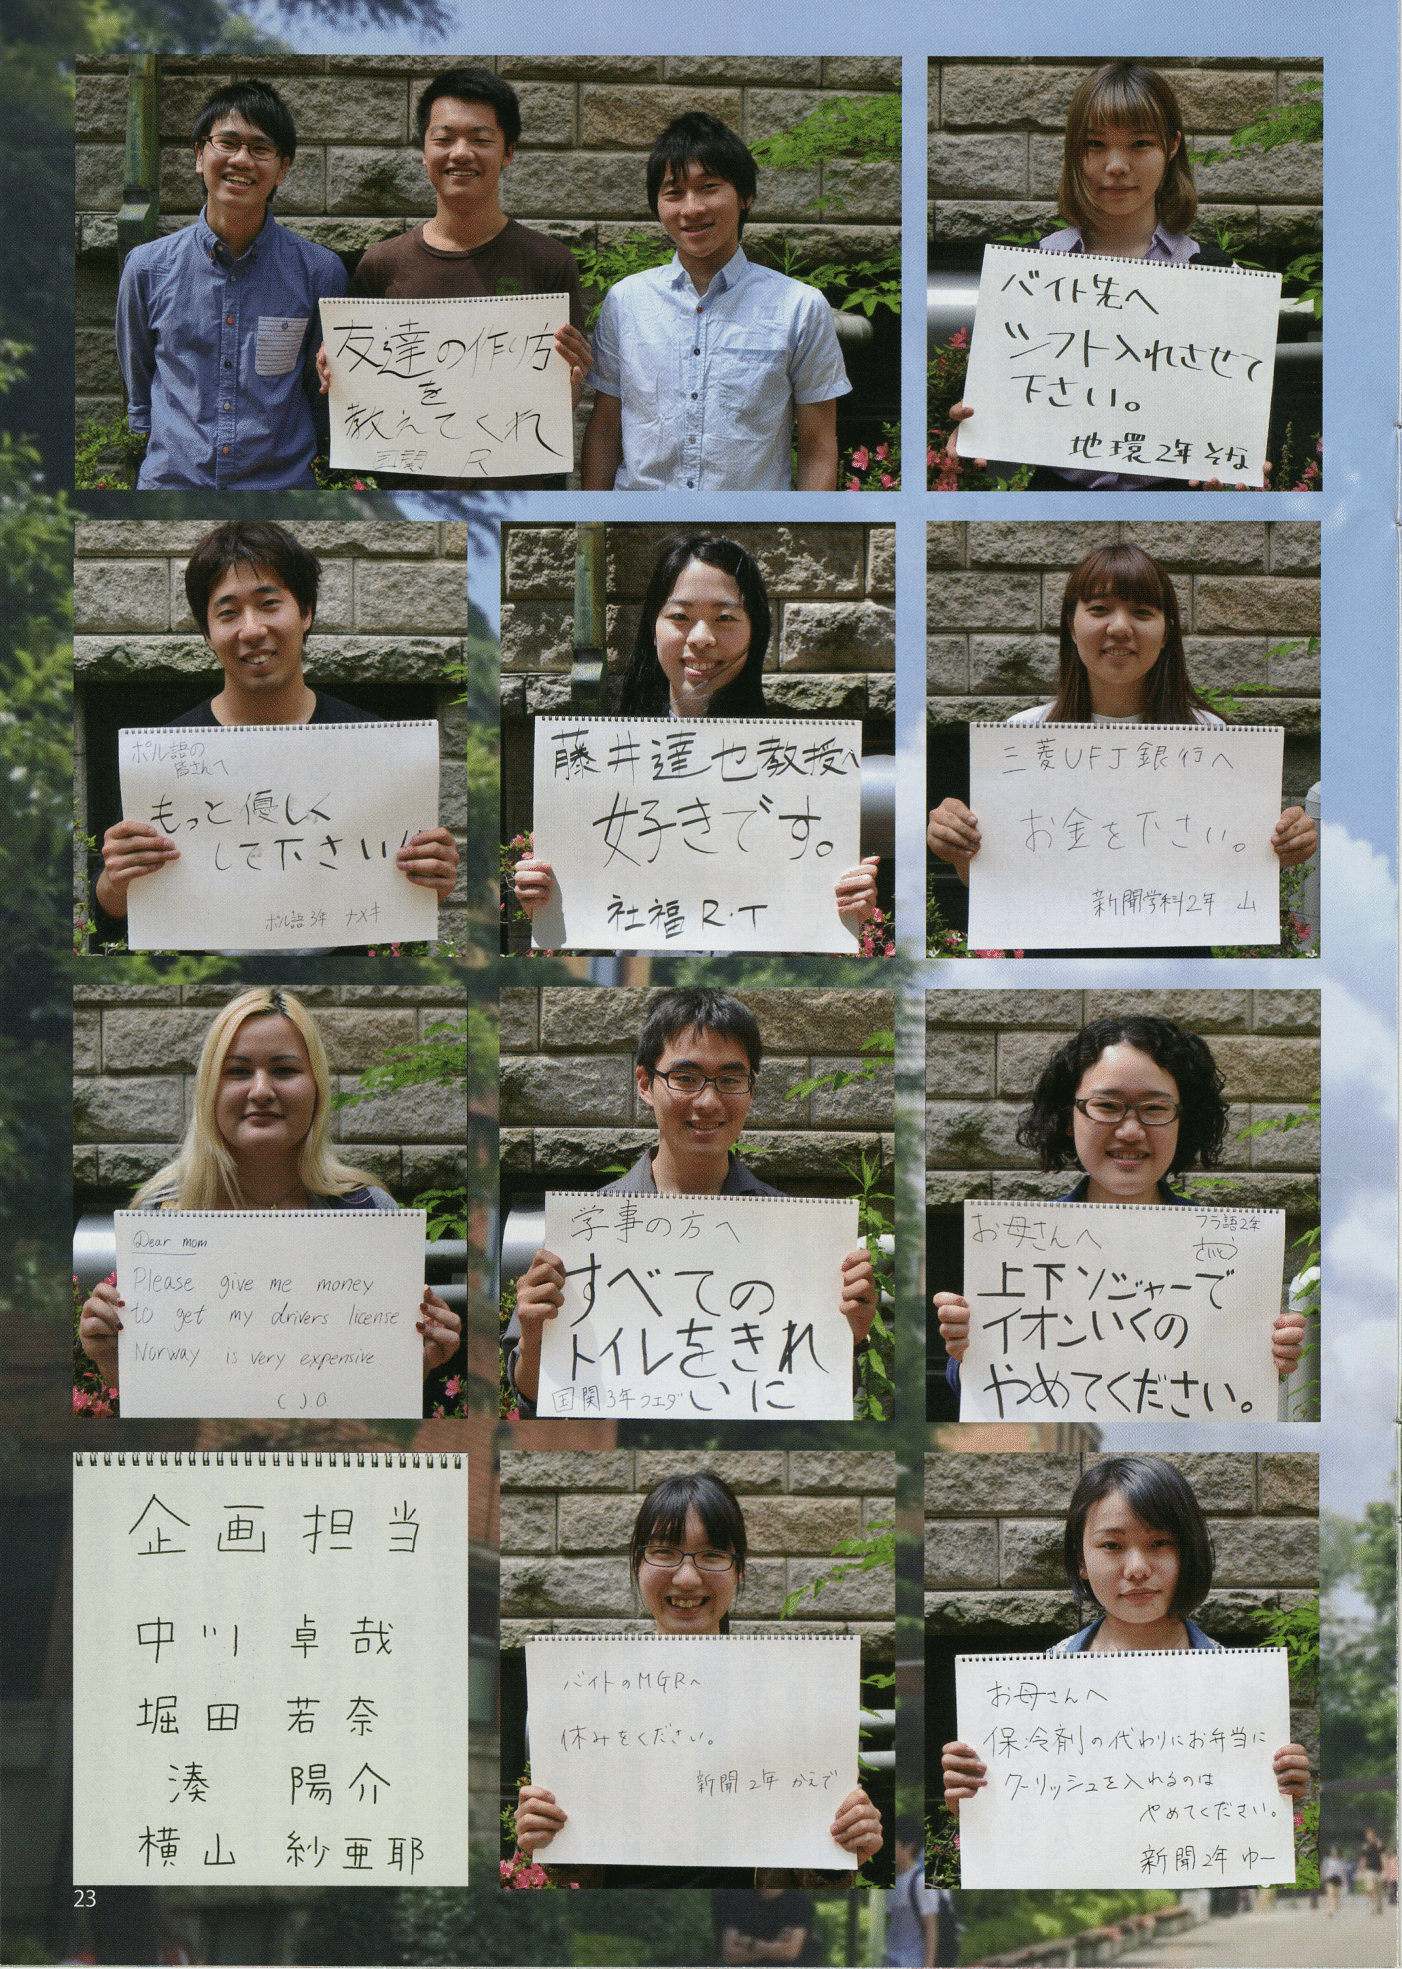 友達の作り方
を
教えてくれ
国関 R
バイト先へ
シフト入れさせて
下さい。
地環2年 そな
ポル語の
皆さんへ
もっと優しく
して下さい!!
ポル語3年 ナメキ
藤井達也教授へ
好きです。
社福 R.T
三菱UFJ銀行へ
お金を下さい。
新聞学科2年 山
Dear mom
Please give me money
to get my drivers license.
Norway is very expensive
学事の方へ
すべての
トイレをきれ
いに
国関3年ウエダ
お母さんへ
フラ語2年
さいとう
上下ソジャーで
イオンいくの
やめてください。
企画担当
中川 卓哉
堀田 若奈
湊 陽介
横山 紗亜耶
バイトのMGRへ
休みをください。
新聞2年 かえで
お母さんへ
保冷剤の代わりにお弁当に
クーリッシュを入れるのは
やめてください。
新聞2年 ゆー
23